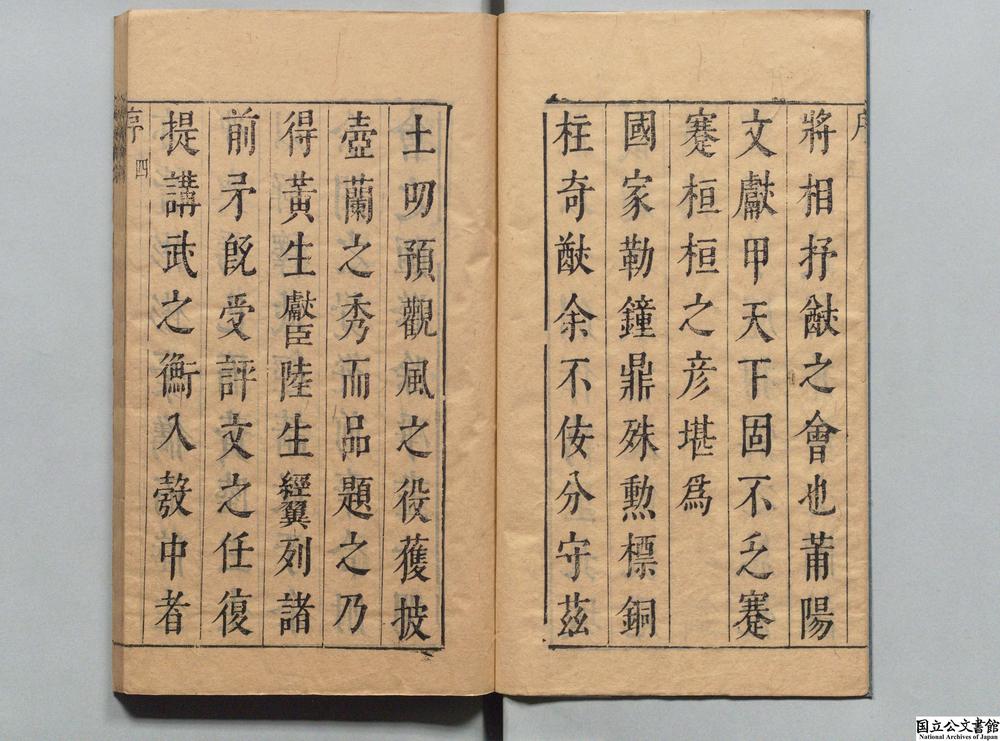 將相抒猷之會也莆陽
文獻甲天下固不乏蹇
蹇桓桓之彦堪爲
國家勒鐘鼎殊勲標銅
柱奇猷余不佞分守茲
土叨預觀風之役獲披
壺蘭之秀而品題之乃
得黃生獻臣陸生經翼列諸
前矛旣受評文之任復
提講武之衡入彀中者
序 四
国立公文書館
National Archives of Japan